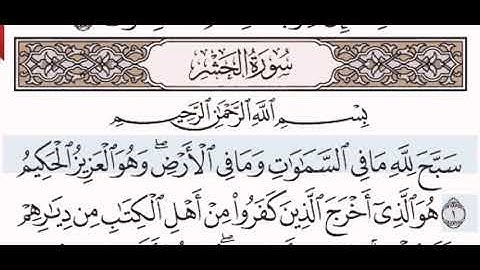 سُورَةُ الحَشْرِ
بِسْمِ اللَّهِ الرَّحْمَٰنِ الرَّحِيمِ
سَبَّحَ لِلَّهِ مَا فِي السَّمَاوَاتِ وَمَا فِي الْأَرْضِ ۖ وَهُوَ الْعَزِيزُ الْحَكِيمُ
١ هُوَ الَّذِي أَخْرَجَ الَّذِينَ كَفَرُوا مِنْ أَهْلِ الْكِتَابِ مِن دِيَارِهِمْ